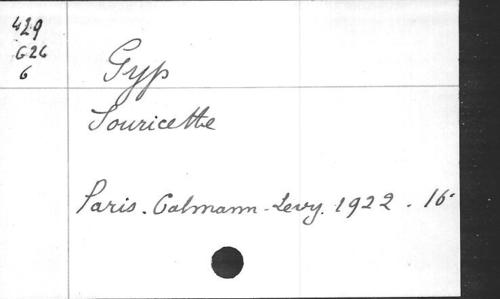 429
G26
6
Gyp
Souricette
Paris. Calmann-Levy. 1922. 16°